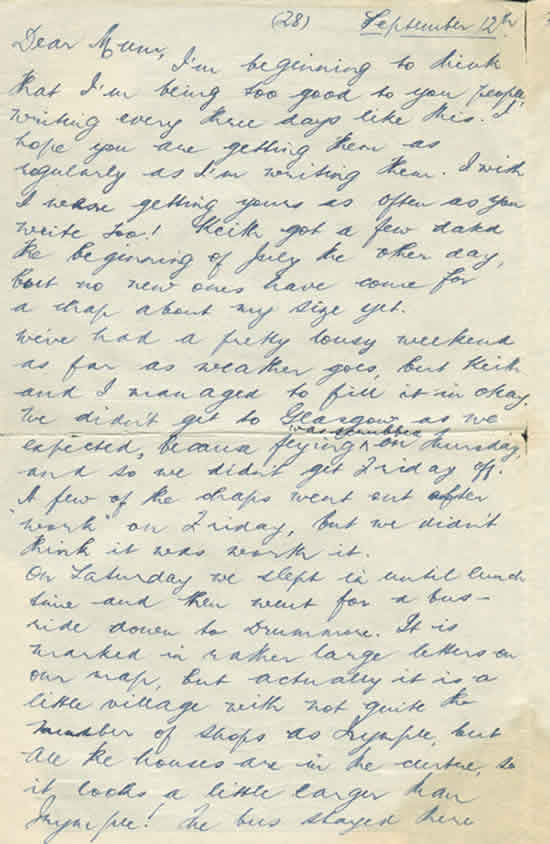 (28) September 12th
Dear Mum,
I'm beginning to think
that I'm being too good to you people,
writing every three days like this. I
hope you are getting them as
regularly as I'm writing them. I wish
I were getting yours as often as you
write too! Keith got a few dated
the beginning of July the other day,
but no new ones have come for
a chap about my size yet.
We've had a pretty lousy weekend
as far as weather goes, but Keith
and I managed to fill it in okay.
We didn't get to Glasgow as we
expected, because flying was scrubbed on Thursday,
and so we didn't get Friday off.
A few of the chaps went out after
"work" on Friday, but we didn't
think it was worth it.
On Saturday we slept in until lunch
time and then went for a bus-
ride down to Drummore. It is
marked in rather large letters on
our map, but actually it is a
little village with not quite the
number of shops as Gympie, but
all the houses are in the centre, so
it looks a little larger than
Gympie! The bus stayed there